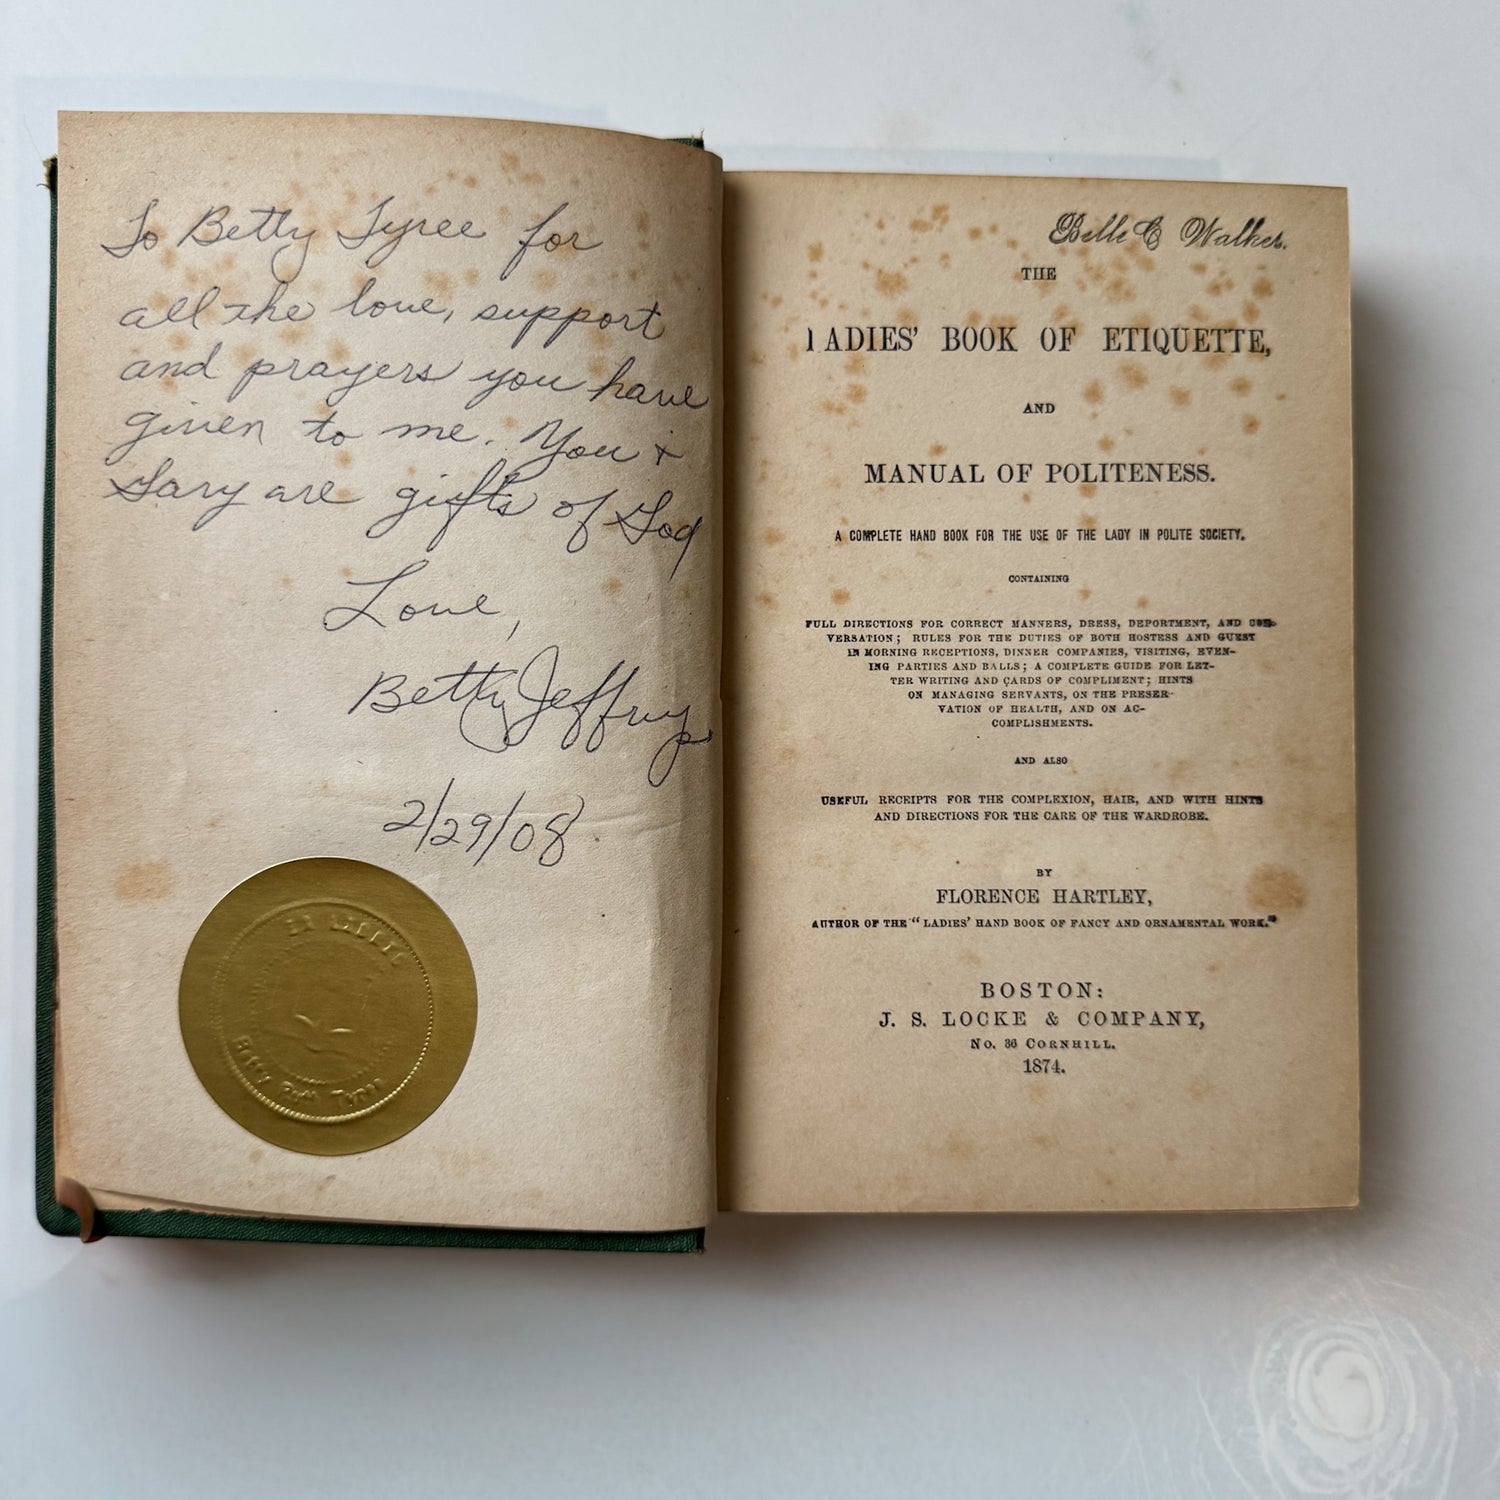 To Betty Tyree for
all the love, support
and prayers you have
given to me. You +
Gary are gifts of God
Love,
Betty Jeffrey
2/29/08
Betty Tyree
Belle C Walker.
THE
LADIES' BOOK OF ETIQUETTE,
AND
MANUAL OF POLITENESS.
A COMPLETE HAND BOOK FOR THE USE OF THE LADY IN POLITE SOCIETY.
CONTAINING
FULL DIRECTIONS FOR CORRECT MANNERS, DRESS, DEPORTMENT, AND CON-
VERSATION; RULES FOR THE DUTIES OF BOTH HOSTESS AND GUEST
IN MORNING RECEPTIONS, DINNER COMPANIES, VISITING, EVEN-
ING PARTIES AND BALLS; A COMPLETE GUIDE FOR LET-
TER WRITING AND CARDS OF COMPLIMENT; HINTS
ON MANAGING SERVANTS, ON THE PRESER-
VATION OF HEALTH, AND ON AC-
COMPLISHMENTS.
AND ALSO
USEFUL RECEIPTS FOR THE COMPLEXION, HAIR, AND WITH HINTS
AND DIRECTIONS FOR THE CARE OF THE WARDROBE.
BY
FLORENCE HARTLEY,
AUTHOR OF THE "LADIES' HAND BOOK OF FANCY AND ORNAMENTAL WORK."
BOSTON:
J. S. LOCKE & COMPANY,
No. 36 CORNHILL.
1874.